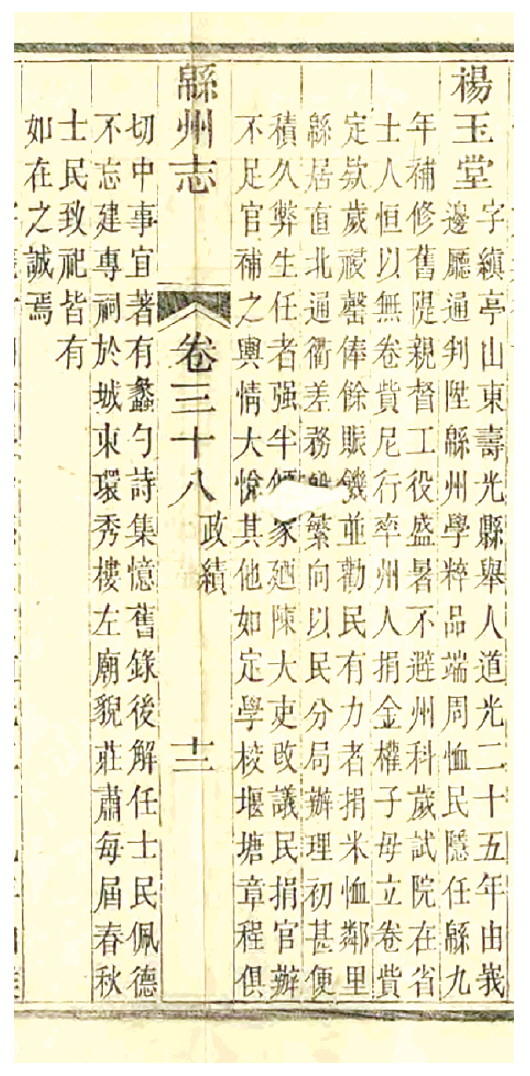 楊玉堂 字縝亭山東壽光縣舉人道光二十五年由峩
邊廳通判陞緜州學粹品端周恤民隱任緜九
年補修舊隄親督工役盛暑不避州科歲試院在省
士人恒以無卷貲尼行率州人捐金權子母立卷貲
定欵歲祲罄俸餘賑饑並勸民有力者捐米恤鄰里
緜居直北通衢差務繁向以民分局辦理初甚便
積久弊生任者强半家廼陳大吏改議民捐官辦
不足官補之輿情大悅其他如定學校堰塘章程俱
緜州志 卷三十八 政績 十二
切中事宜著有蠡勺詩集憶舊錄後解任士民佩德
不忘建專祠於城東環秀樓左廟貌莊肅每屆春秋
士民致祀皆有
如在之誠焉